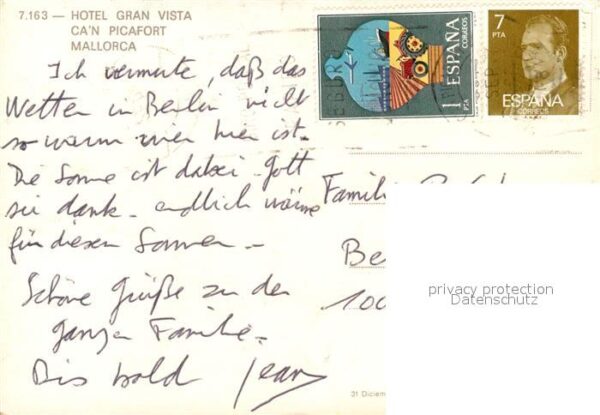 7.163 — HOTEL GRAN VISTA
CA'N PICAFORT
MALLORCA
Ich vermute, daß das
Wetter in Berlin nicht
so warm wie hier ist.
Die Sonne ist dabei Gott
sei dank - endlich wärme
für diesen Sommer -
Schöne Grüße zu der
ganzen Familie -
Bis bald Jean
1 PTA ESPAÑA CORREOS
7 PTA
ESPAÑA
CORREOS
Familie
Be
100
privacy protection
Datenschutz
31 Diciem